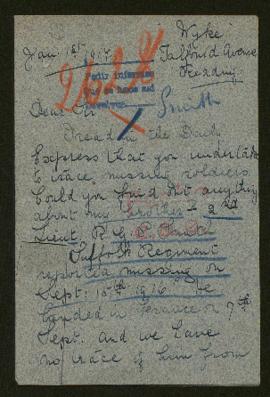 Wyke
Jan 1st 1917. Talfourd Avenue
Reading
Dear Sir Smith
I read in the Daily
Express that you undertake
to trace missing soldiers
Could you find out anything
about my brother 2nd
Lieut. R G Smith
Suffolk Regiment
reported missing on
Sept: 15th 1916. He
landed in France on 7th
Sept. And we have
no trace of him from